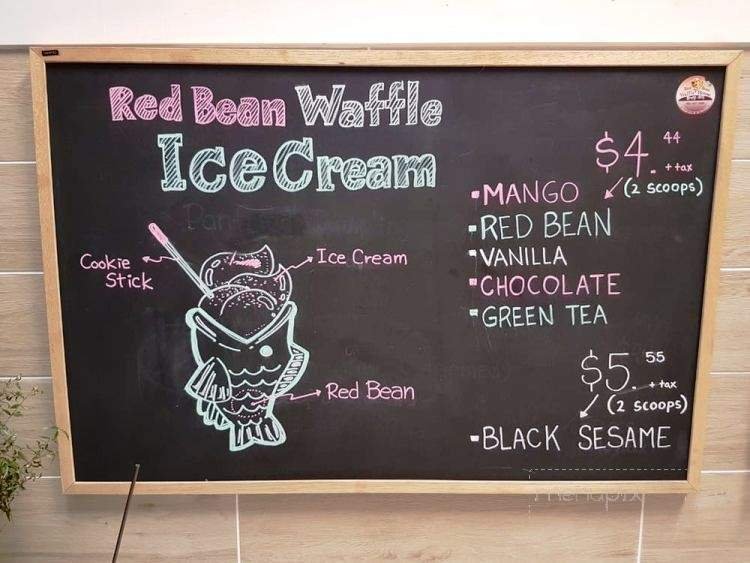 Red Bean Waffle
Ice Cream
Cookie
Stick
Ice Cream
Red Bean
$4.44
+ tax
(2 SCOOPS)
▪MANGO
▪RED BEAN
▪VANILLA
▪CHOCOLATE
▪GREEN TEA
$5.55
+ tax
(2 SCOOPS)
▪BLACK SESAME
menupix